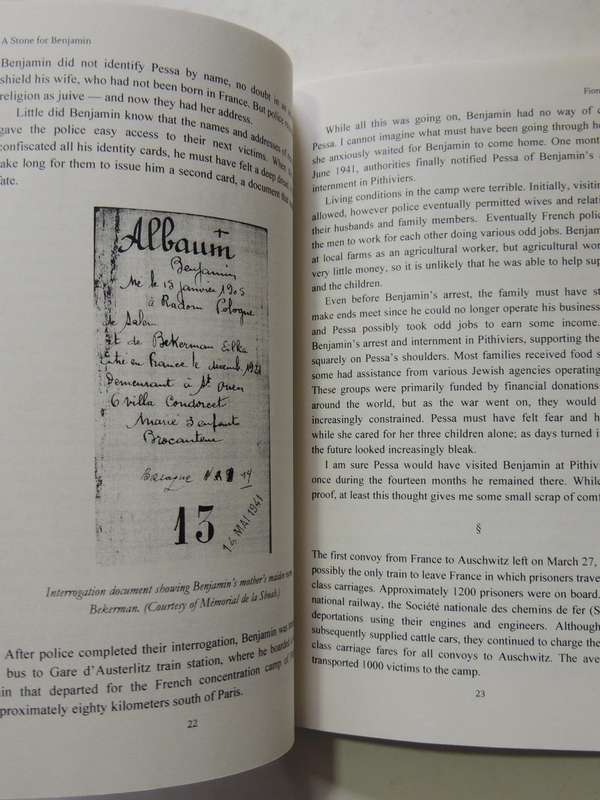 A Stone for Benjamin
Benjamin did not identify Pessa by name, no doubt in an
shield his wife, who had not been born in France. But police
religion as juive — and now they had her address.
Little did Benjamin know that the names and addresses of
gave the police easy access to their next victims. When
confiscated all his identity cards, he must have felt a deep dread
ake long for them to issue him a second card, a document that
fate.
Albaum
Benjamin
Né le 13 janvier 1905
à Radom Pologne
de Salem
et de Bekerman Elka
Entré en France le décembre 1921
Demeurant à St Ouen
6 villa Condorcet
Marié 3 enfants
Brocanteur
Baraque 14
13
14 MAI 1941
Interrogation document showing Benjamin's mother's maiden name
Bekerman. (Courtesy of Mémorial de la Shoah.)
After police completed their interrogation, Benjamin was
bus to Gare d'Austerlitz train station, where he boarded
ain that departed for the French concentration camp of
proximately eighty kilometers south of Paris.
22
Fion
While all this was going on, Benjamin had no way of c
Pessa. I cannot imagine what must have been going through he
she anxiously waited for Benjamin to come home. One mont
June 1941, authorities finally notified Pessa of Benjamin's a
internment in Pithiviers.
Living conditions in the camp were terrible. Initially, visitin
allowed, however police eventually permitted wives and relati
their husbands and family members. Eventually French polic
the men to work for each other doing various odd jobs. Benjam
at local farms as an agricultural worker, but agricultural wor
very little money, so it is unlikely that he was able to help sup
and the children.
Even before Benjamin's arrest, the family must have st
make ends meet since he could no longer operate his business
and Pessa possibly took odd jobs to earn some income.
Benjamin's arrest and internment in Pithiviers, supporting the
squarely on Pessa's shoulders. Most families received food s
some had assistance from various Jewish agencies operating
These groups were primarily funded by financial donations
around the world, but as the war went on, they would
increasingly constrained. Pessa must have felt fear and h
while she cared for her three children alone; as days turned i
the future looked increasingly bleak.
I am sure Pessa would have visited Benjamin at Pithiv
once during the fourteen months he remained there. While
proof, at least this thought gives me some small scrap of comf
§
The first convoy from France to Auschwitz left on March 27,
possibly the only train to leave France in which prisoners trave
class carriages. Approximately 1200 prisoners were on board.
national railway, the Société nationale des chemins de fer (S
deportations using their engines and engineers. Although
subsequently supplied cattle cars, they continued to charge the
class carriage fares for all convoys to Auschwitz. The ave
transported 1000 victims to the camp.
23